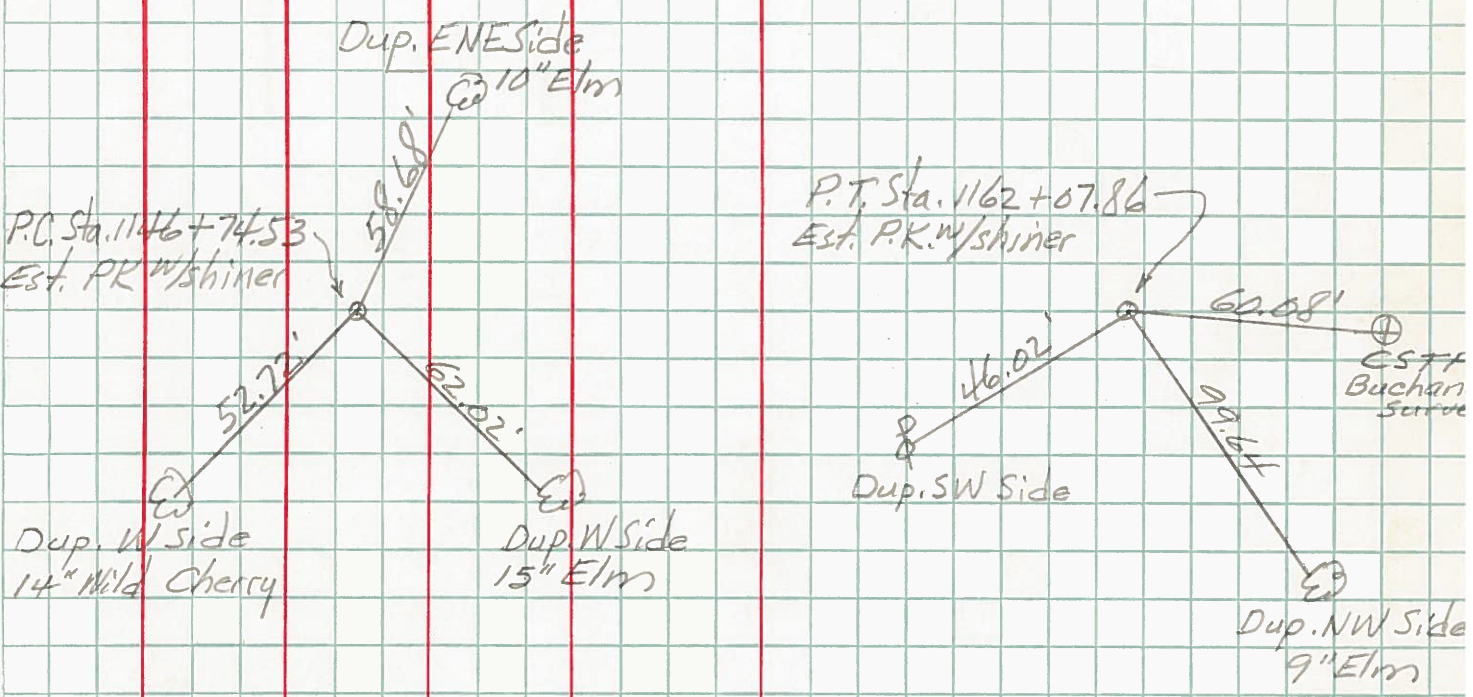 Dup. ENE Side
10" Elm
58.68'
P.C. Sta. 1146+74.53
Est. PK w/shiner
52.72'
62.02'
Dup. W Side
14" Wild Cherry
Dup. W Side
15" Elm
P.T. Sta. 1162+07.86
Est. P.K. w/shiner
60.08'
46.02'
99.64
Dup. SW Side
Buchan
Surve
Dup. NW Side
9" Elm